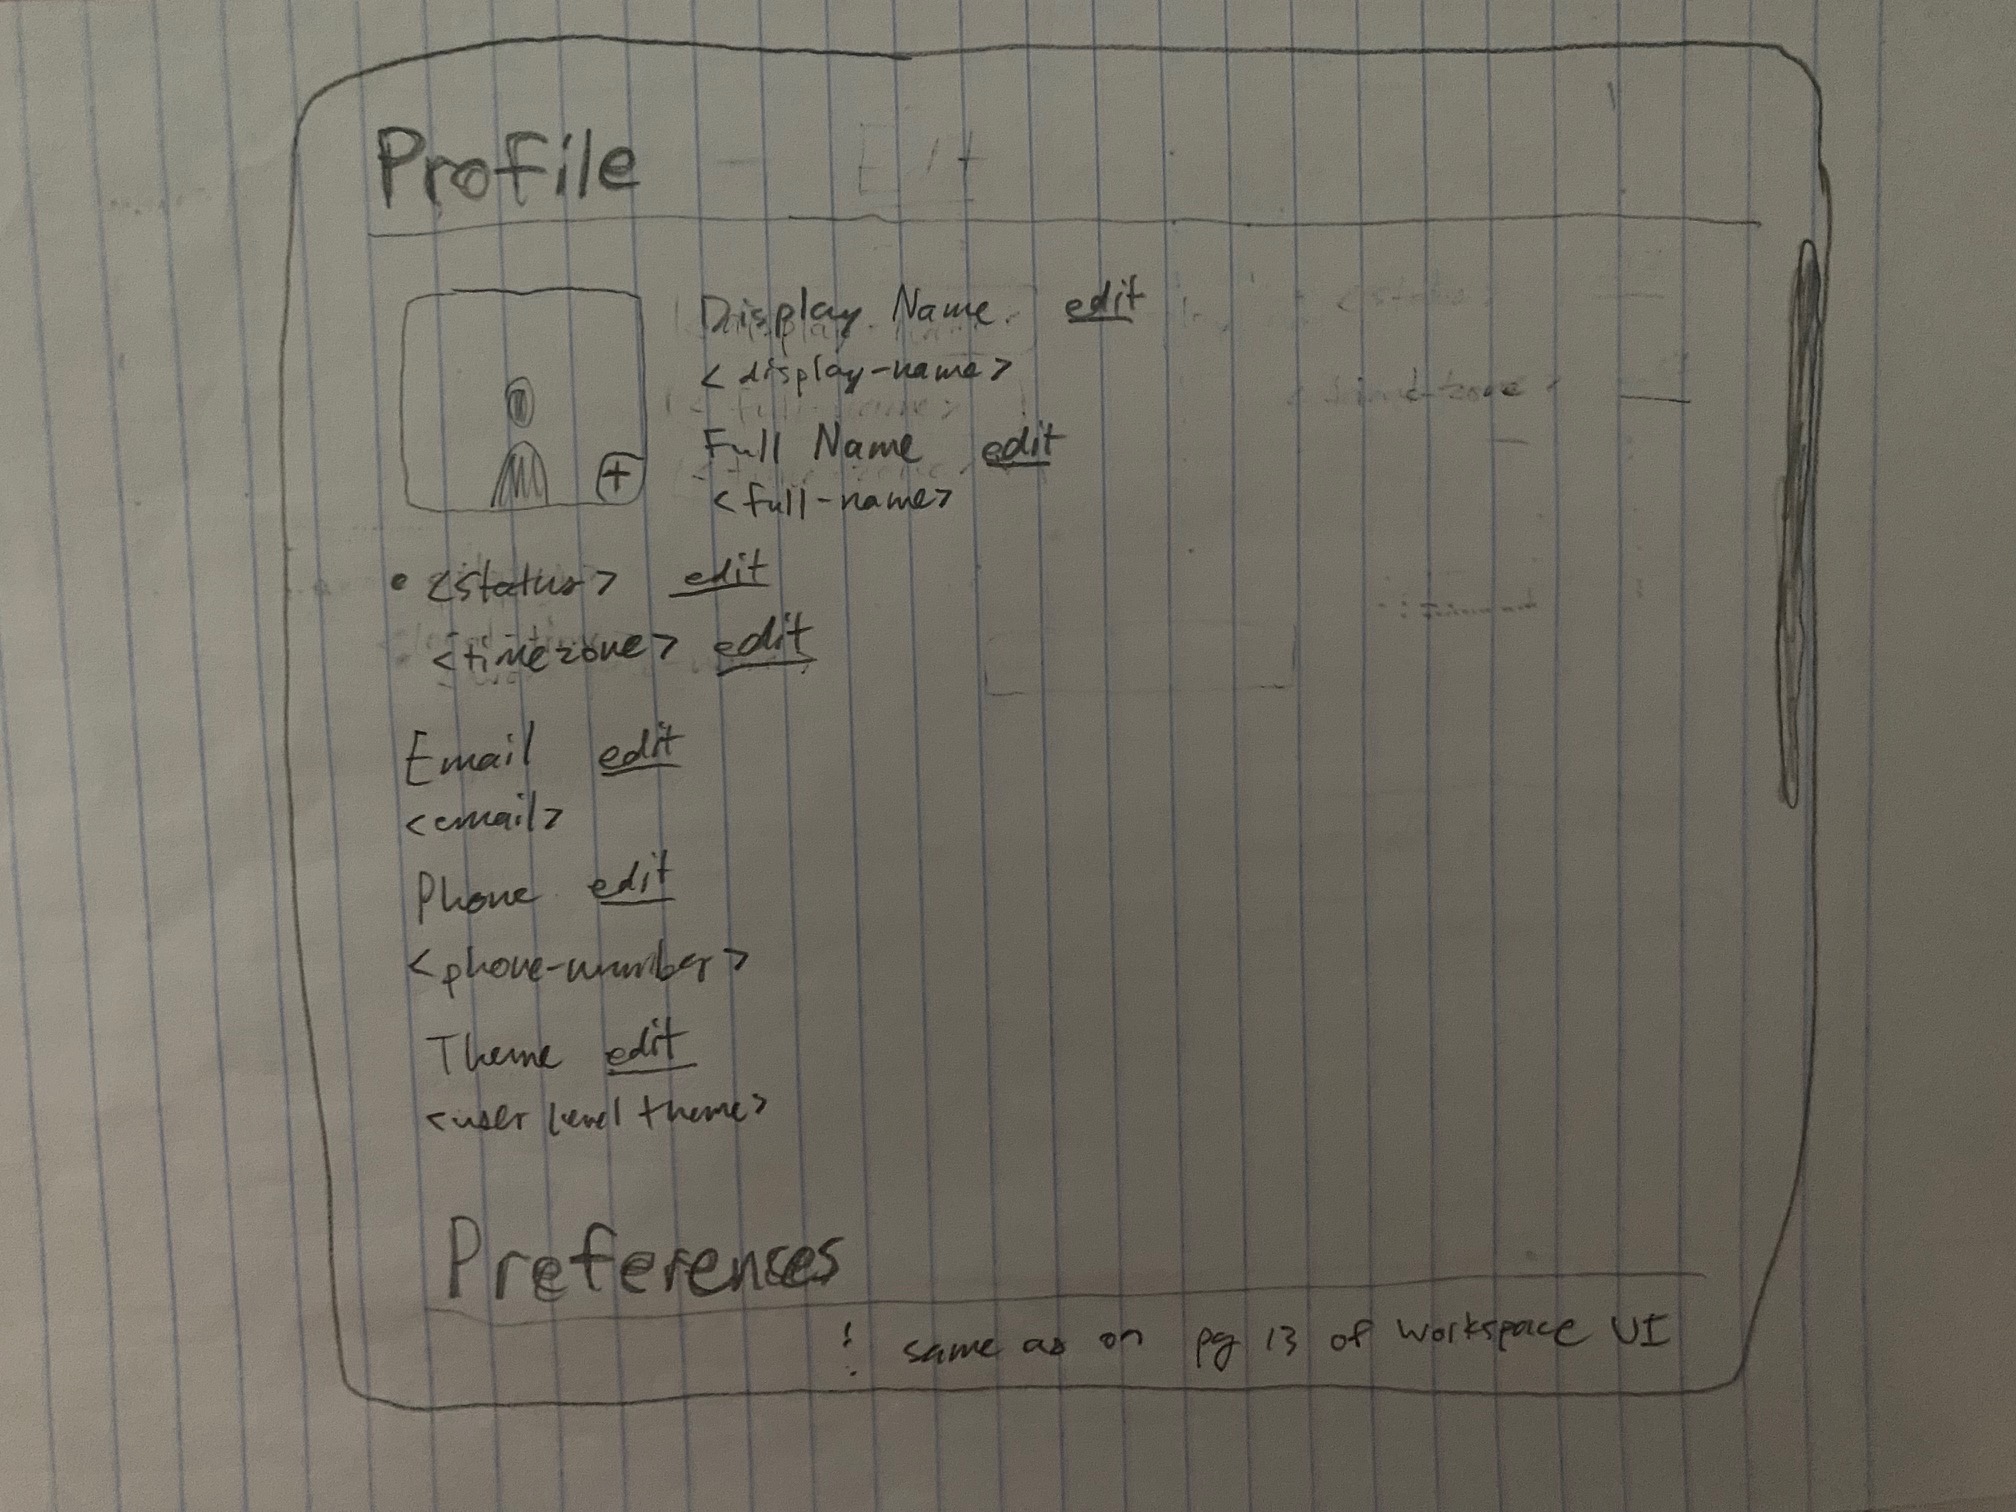 Profile
Display Name edit
<display-name>
Full Name edit
<full-name>
• <status> edit
<timezone> edit
Email edit
<email>
Phone edit
<phone-number>
Theme edit
<user level theme>
Preferences
same as on pg 13 of workspace UI